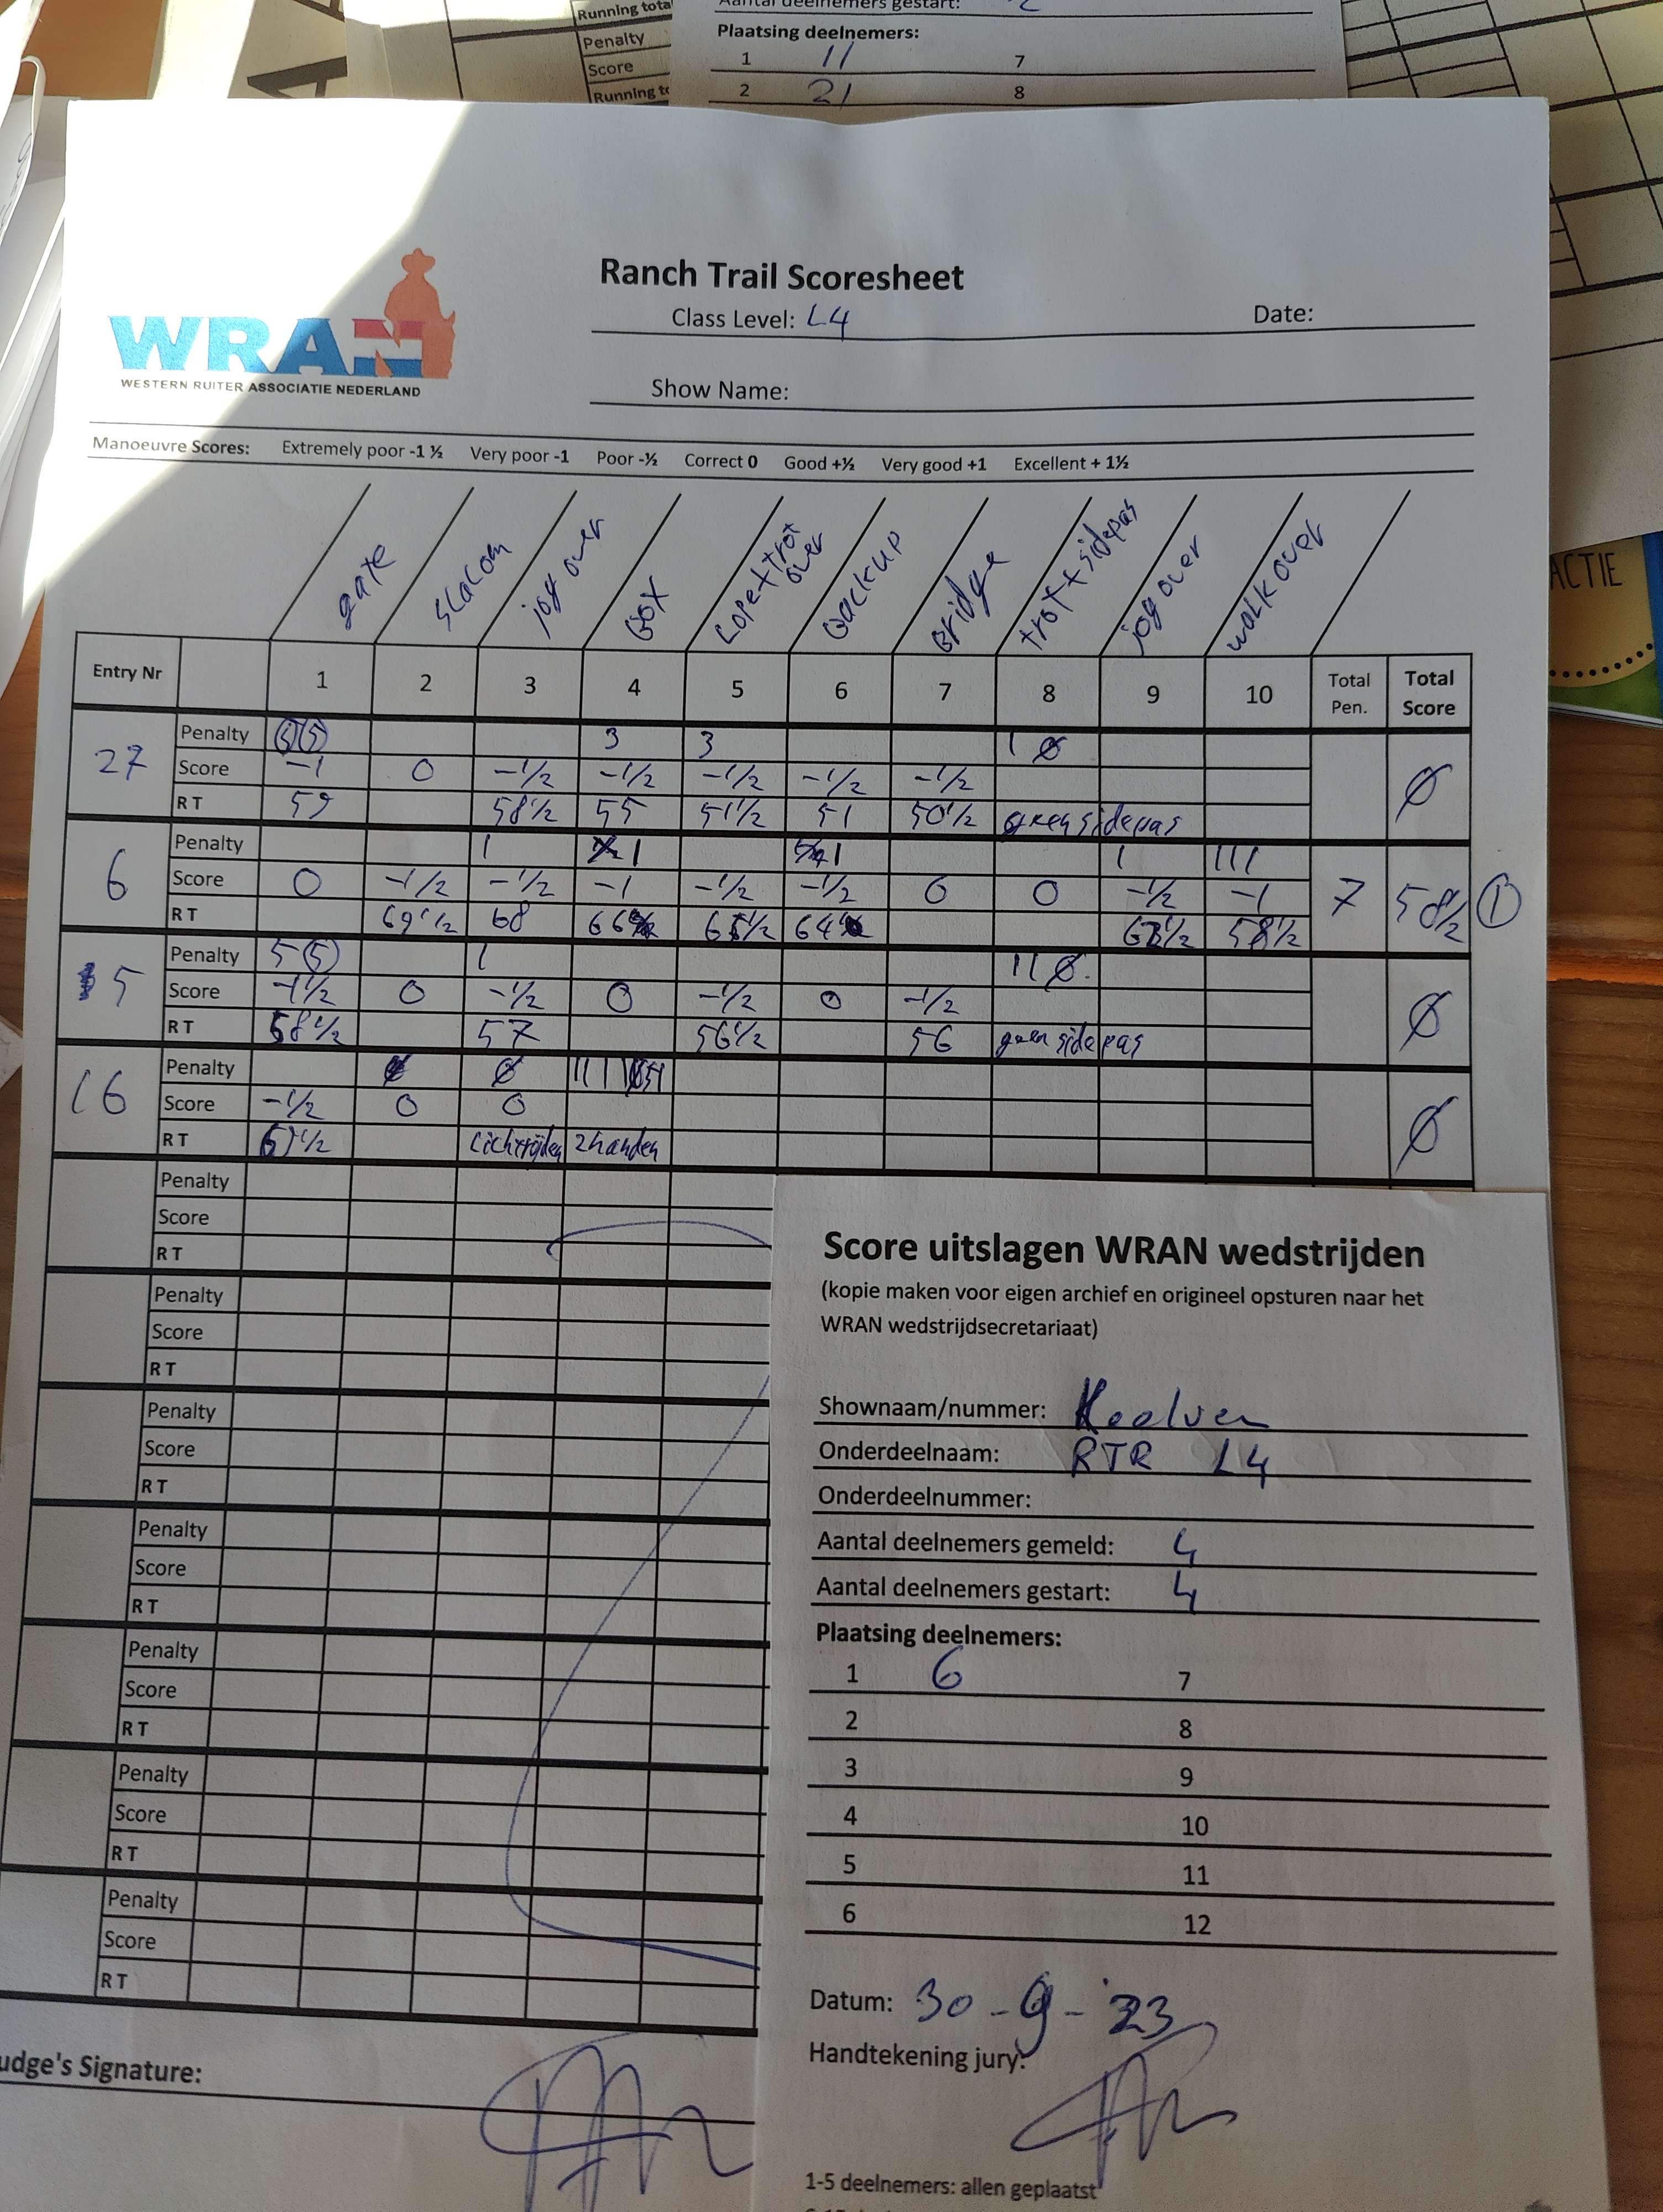 Running tota
Penalty
Score
Running to
Aantal deelnemers gestart: 2
Plaatsing deelnemers:
1 11 7
2 21 8
ACTIE
WRAN
WESTERN RUITER ASSOCIATIE NEDERLAND
Ranch Trail Scoresheet
Class Level: L4 Date:
Show Name:
Manoeuvre Scores: Extremely poor -1 ½ Very poor -1 Poor -½ Correct 0 Good +½ Very good +1 Excellent + 1½
gate slacom jog over box Lope+trot over backup bridge trot+sidepas jog over walkover
Entry Nr 1 2 3 4 5 6 7 8 9 10 Total Pen. Total Score
27 Penalty 5 5 3 3 1 Ø
Score -1 0 -1/2 -1/2 -1/2 -1/2 -1/2 Ø
RT 59 58 1/2 55 51 1/2 51 50 1/2 geen sidepas
6 Penalty 1 1 1 1 111
Score 0 -1/2 -1/2 -1 -1/2 -1/2 0 0 -1/2 -1 7 58 1/2 1
RT 69 1/2 68 66 65 1/2 64 62 1/2 58 1/2
5 Penalty 5 5 1 11 Ø
Score -1 1/2 0 -1/2 0 -1/2 0 -1/2 Ø
RT 58 1/2 57 56 1/2 56 geen sidepas
16 Penalty Ø 1111
Score -1/2 0 0 Ø
RT 69 1/2 Lichtrijden 2handen
Penalty
Score
RT
Penalty
Score
RT
Penalty
Score
RT
Penalty
Score
RT
Penalty
Score
RT
Penalty
Score
RT
Penalty
Score
RT
udge's Signature:
Score uitslagen WRAN wedstrijden
(kopie maken voor eigen archief en origineel opsturen naar het
WRAN wedstrijdsecretariaat)
Shownaam/nummer: Koolven
Onderdeelnaam: RTR L4
Onderdeelnummer:
Aantal deelnemers gemeld: 4
Aantal deelnemers gestart: 4
Plaatsing deelnemers:
1 6 7
2 8
3 9
4 10
5 11
6 12
Datum: 30-9-'23
Handtekening jury:
1-5 deelnemers: allen geplaatst